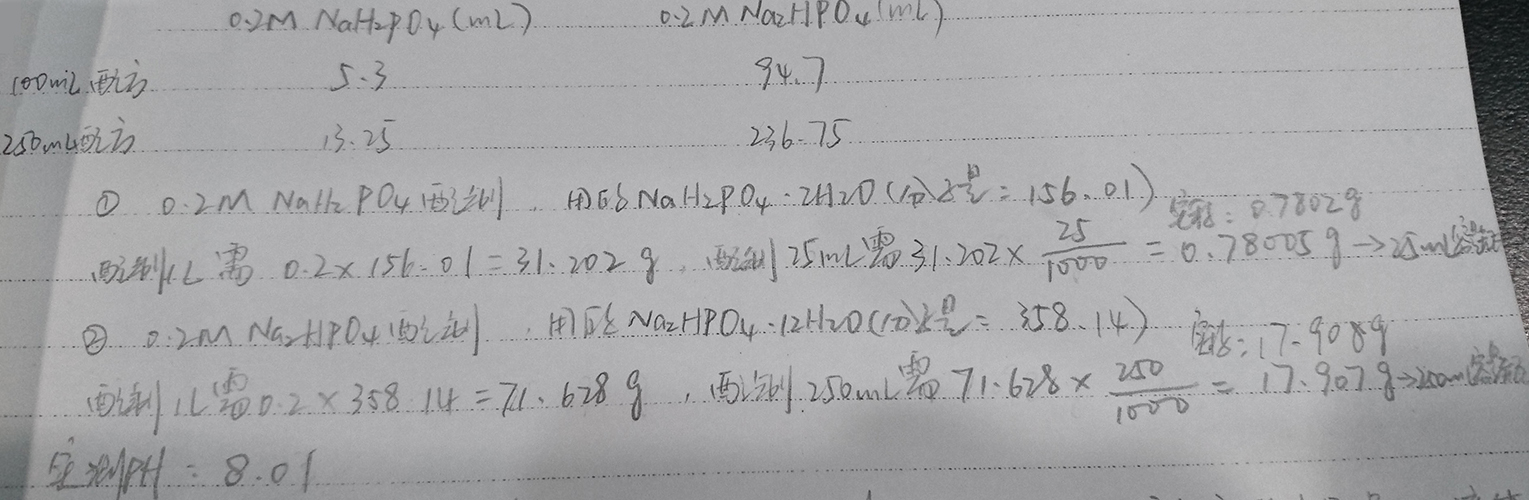 0.2M NaH2PO4(mL) 0.2M Na2HPO4(mL)
100mL配方 5.3 94.7
250mL配方 13.25 236.75
① 0.2M NaH2PO4配制，用的NaH2PO4·2H2O(分子量=156.01) 实称：0.7802g
配制1L需 0.2×156.01=31.202g，配制25mL需31.202×25/1000=0.78005g→25mL容量瓶
② 0.2M Na2HPO4配制，用的Na2HPO4·12H2O(分子量=358.14) 实称：17.908g
配制1L需0.2×358.14=71.628g，配制250mL需71.628×250/1000=17.907g→250mL容量瓶
实测PH=8.01